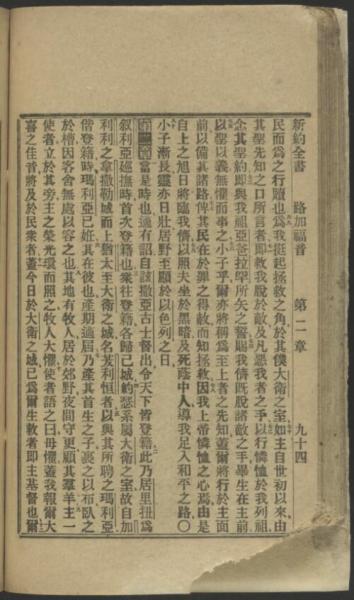 新約全書　路加福音　第一二章　九十四
民而爲之行贖也爲我挺起拯救之角於其僕大衛之室如主自世初以來由
其聖先知之口所言者卽救我脫於敵及凡惡我者之手以行憐恤於我列祖
念其聖約卽與我祖亞伯拉罕所矢之誓賜我儕旣脫諸敵之手畢生在主前
以聖以義無懼而事之小子乎爾亦將稱爲至上者之先知蓋爾將行於主面
前以備其諸路俾其民在於罪之得赦而知拯救因我上帝憐恤之心爲由是
自上之旭日將臨我儕以照夫坐於黑暗及死蔭中人導我足入和平之路〇
小子漸長靈亦日壯居野至顯於以色列之日
第二章 當是時也適有詔自該撒亞古士督出令天下皆登籍此乃居里扭爲
叙利亞巡撫時首次登籍也衆往登籍各歸己城約瑟系屬大衛之室故自加
利利之拿撒勒城而上猶太至大衛之城名芺利恒者以與其所聘之瑪利亞
偕登籍時瑪利亞已妊其在彼也產期適屆乃產其首生之子裹之以布臥之
於槽因客舍無處以容之也其地有牧人居於郊野夜間守更顧其羣羊主一
使者立於其旁主之榮光環而照之牧人大懼使者語之曰毋懼蓋我報爾大
喜之佳音將及於民衆者蓋今日於大衛之城已爲爾生救者卽主基督也爾